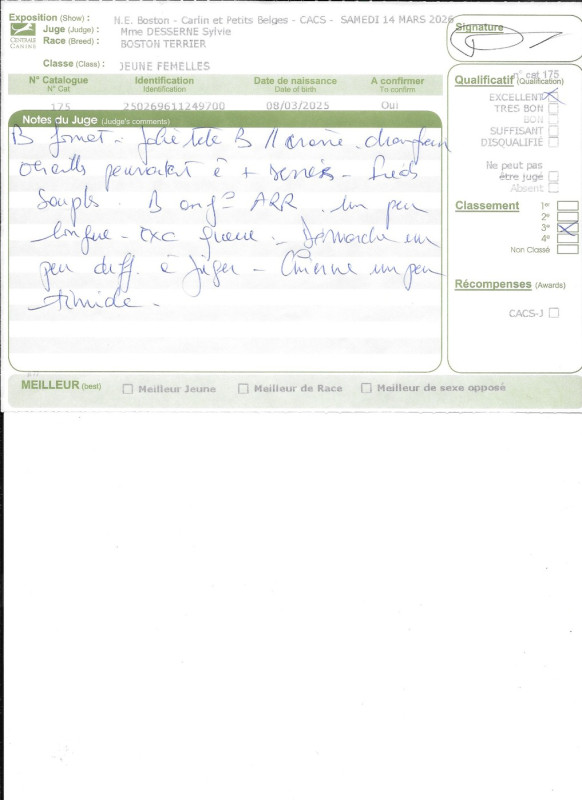 Exposition (Show) : N.E. Boston - Carlin et Petits Belges - CACS - SAMEDI 14 MARS 2026
Juge (Judge) : Mme DESSERNE Sylvie
Race (Breed) : BOSTON TERRIER
CENTRALE CANINE
Classe (Class) : JEUNE FEMELLES
Signature
N° Catalogue Identification Date de naissance A confirmer
N° Cat Identification Date of birth To confirm
175 250269611249700 08/03/2025 Oui
Notes du Juge (Judge's comments)
B format - Jolie tête B //
oreilles pourraient ê + serrés - Pieds
souples . B ang° ARR . un peu
longue - exc queue - Démarche un
peu diff. à juger - Chienne un peu
timide .
n° cat 175
Qualificatif (Qualification)
EXCELLENT
TRES BON
BON
SUFFISANT
DISQUALIFIÉ
Ne peut pas
être jugé
Absent
Classement
1er
2e
3e
4e
Non Classé
Récompenses (Awards)
CACS-J
MEILLEUR (best) Meilleur Jeune Meilleur de Race Meilleur de sexe opposé